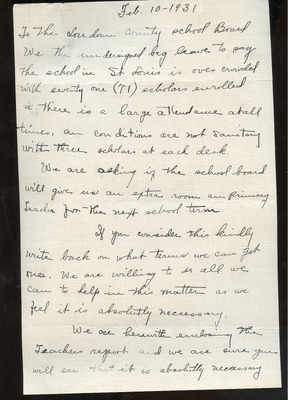 Feb. 10-1931
To the Loudoun County school Board
We the undersigned beg leave to say
the school in St Louis is over crowded
with seventy one (71) scholars enrolled
& there is a large attendance at all
times, an conditions are not sanitary
with three scholars at each desk.
We are asking if the school board
will give us an extra room an primary
teacher for the next school term
If you consider this kindly
write back on what terms we can get
one. We are willing to do all we
can to help in this matter as we
feel it is absolutly necessary.
We are herewith enclosing the
Teachers report and we are sure you
will see that it is absolutly necessary